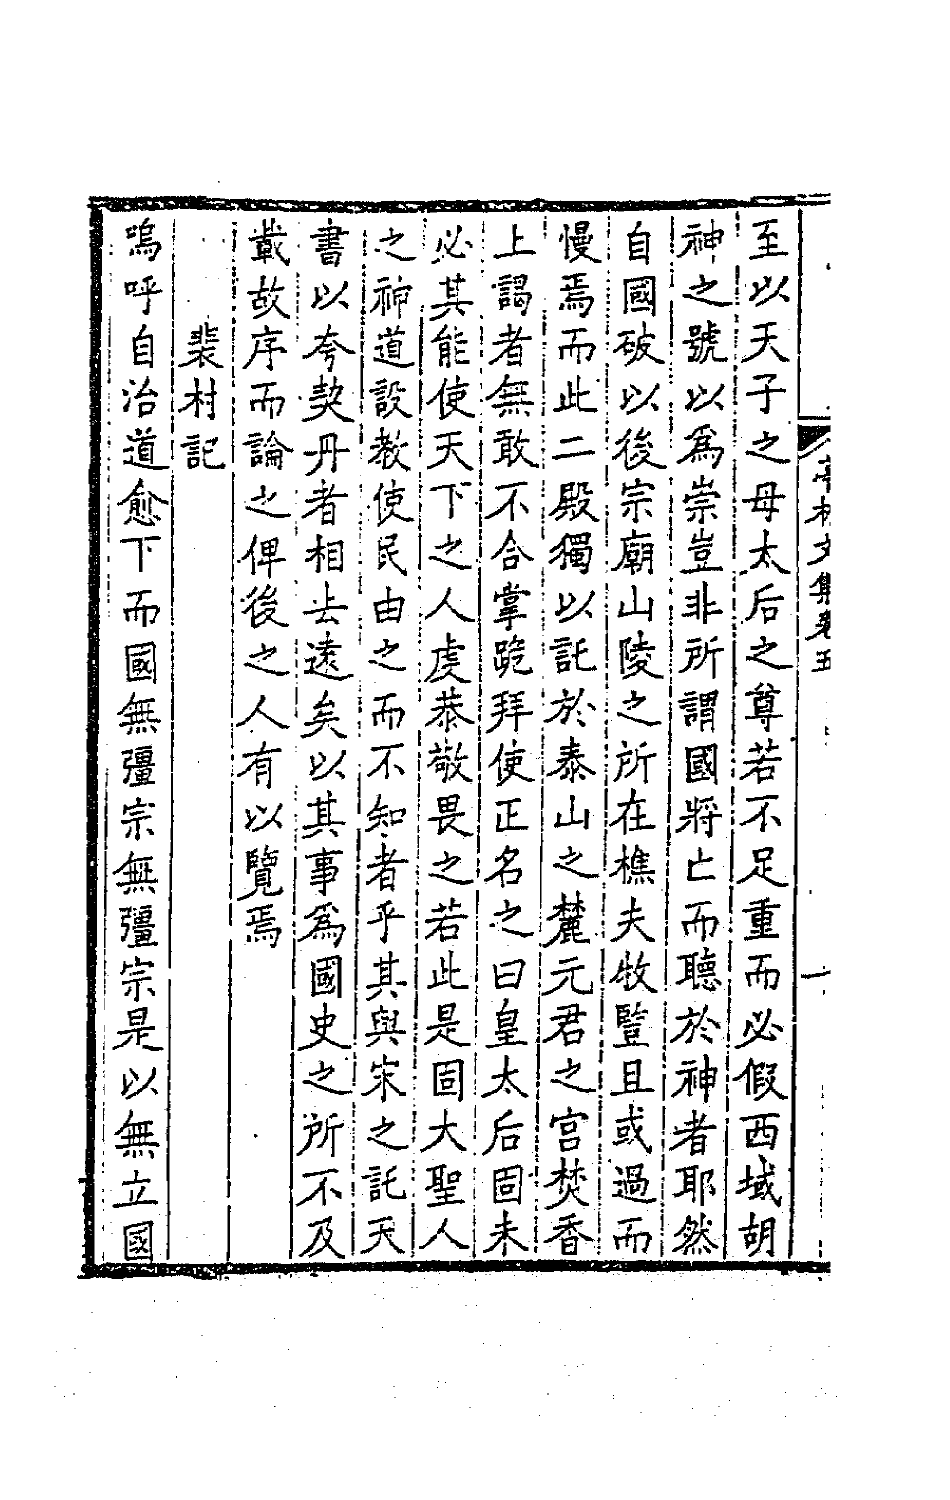 亭林文集卷五
一
至以天子之母太后之尊若不足重而必假西域胡
神之號以爲崇豈非所謂國將亡而聽於神者耶然
自國破以後宗廟山陵之所在樵夫牧豎且或過而
慢焉而此二殿獨以託於泰山之麓元君之宮焚香
上謁者無敢不合掌跪拜使正名之曰皇太后固未
必其能使天下之人虔恭敬畏之若此是固大聖人
之神道設教使民由之而不知者乎其與宋之託天
書以夸契丹者相去遠矣以其事爲國史之所不及
載故序而論之俾後之人有以覽焉
裴村記
嗚呼自治道愈下而國無彊宗無彊宗是以無立國